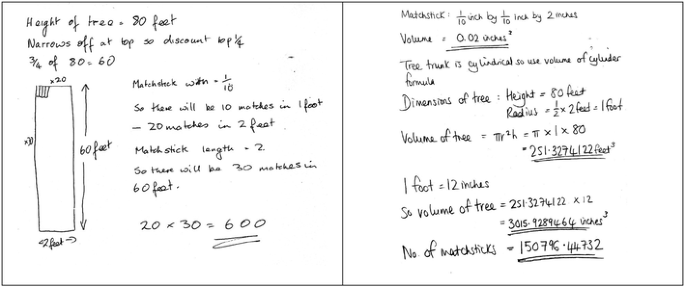 Height of tree = 80 feet
Narrows off at top so discount top 1/4
3/4 of 80 = 60
x20
Matchstick width = 1/10
So there will be 10 matches in 1 foot
- 20 matches in 2 feet
x30
60 feet
Matchstick length = 2
So there will be 30 matches in
60 feet.
20 x 30 = 600
2 feet
Matchstick: 1/10 inch by 1/10 inch by 2 inches
Volume = 0.02 inches³
Tree trunk is cylindrical so use volume of cylinder
formula
Dimensions of tree: Height = 80 feet
Radius = 1/2 x 2 feet = 1 foot
Volume of tree = πr²h = π x 1 x 80
= 251.3274122 feet³
1 foot = 12 inches
So volume of tree = 251.3274122 x 12
= 3015.9289464 inches³
No. of matchsticks = 150796.44732